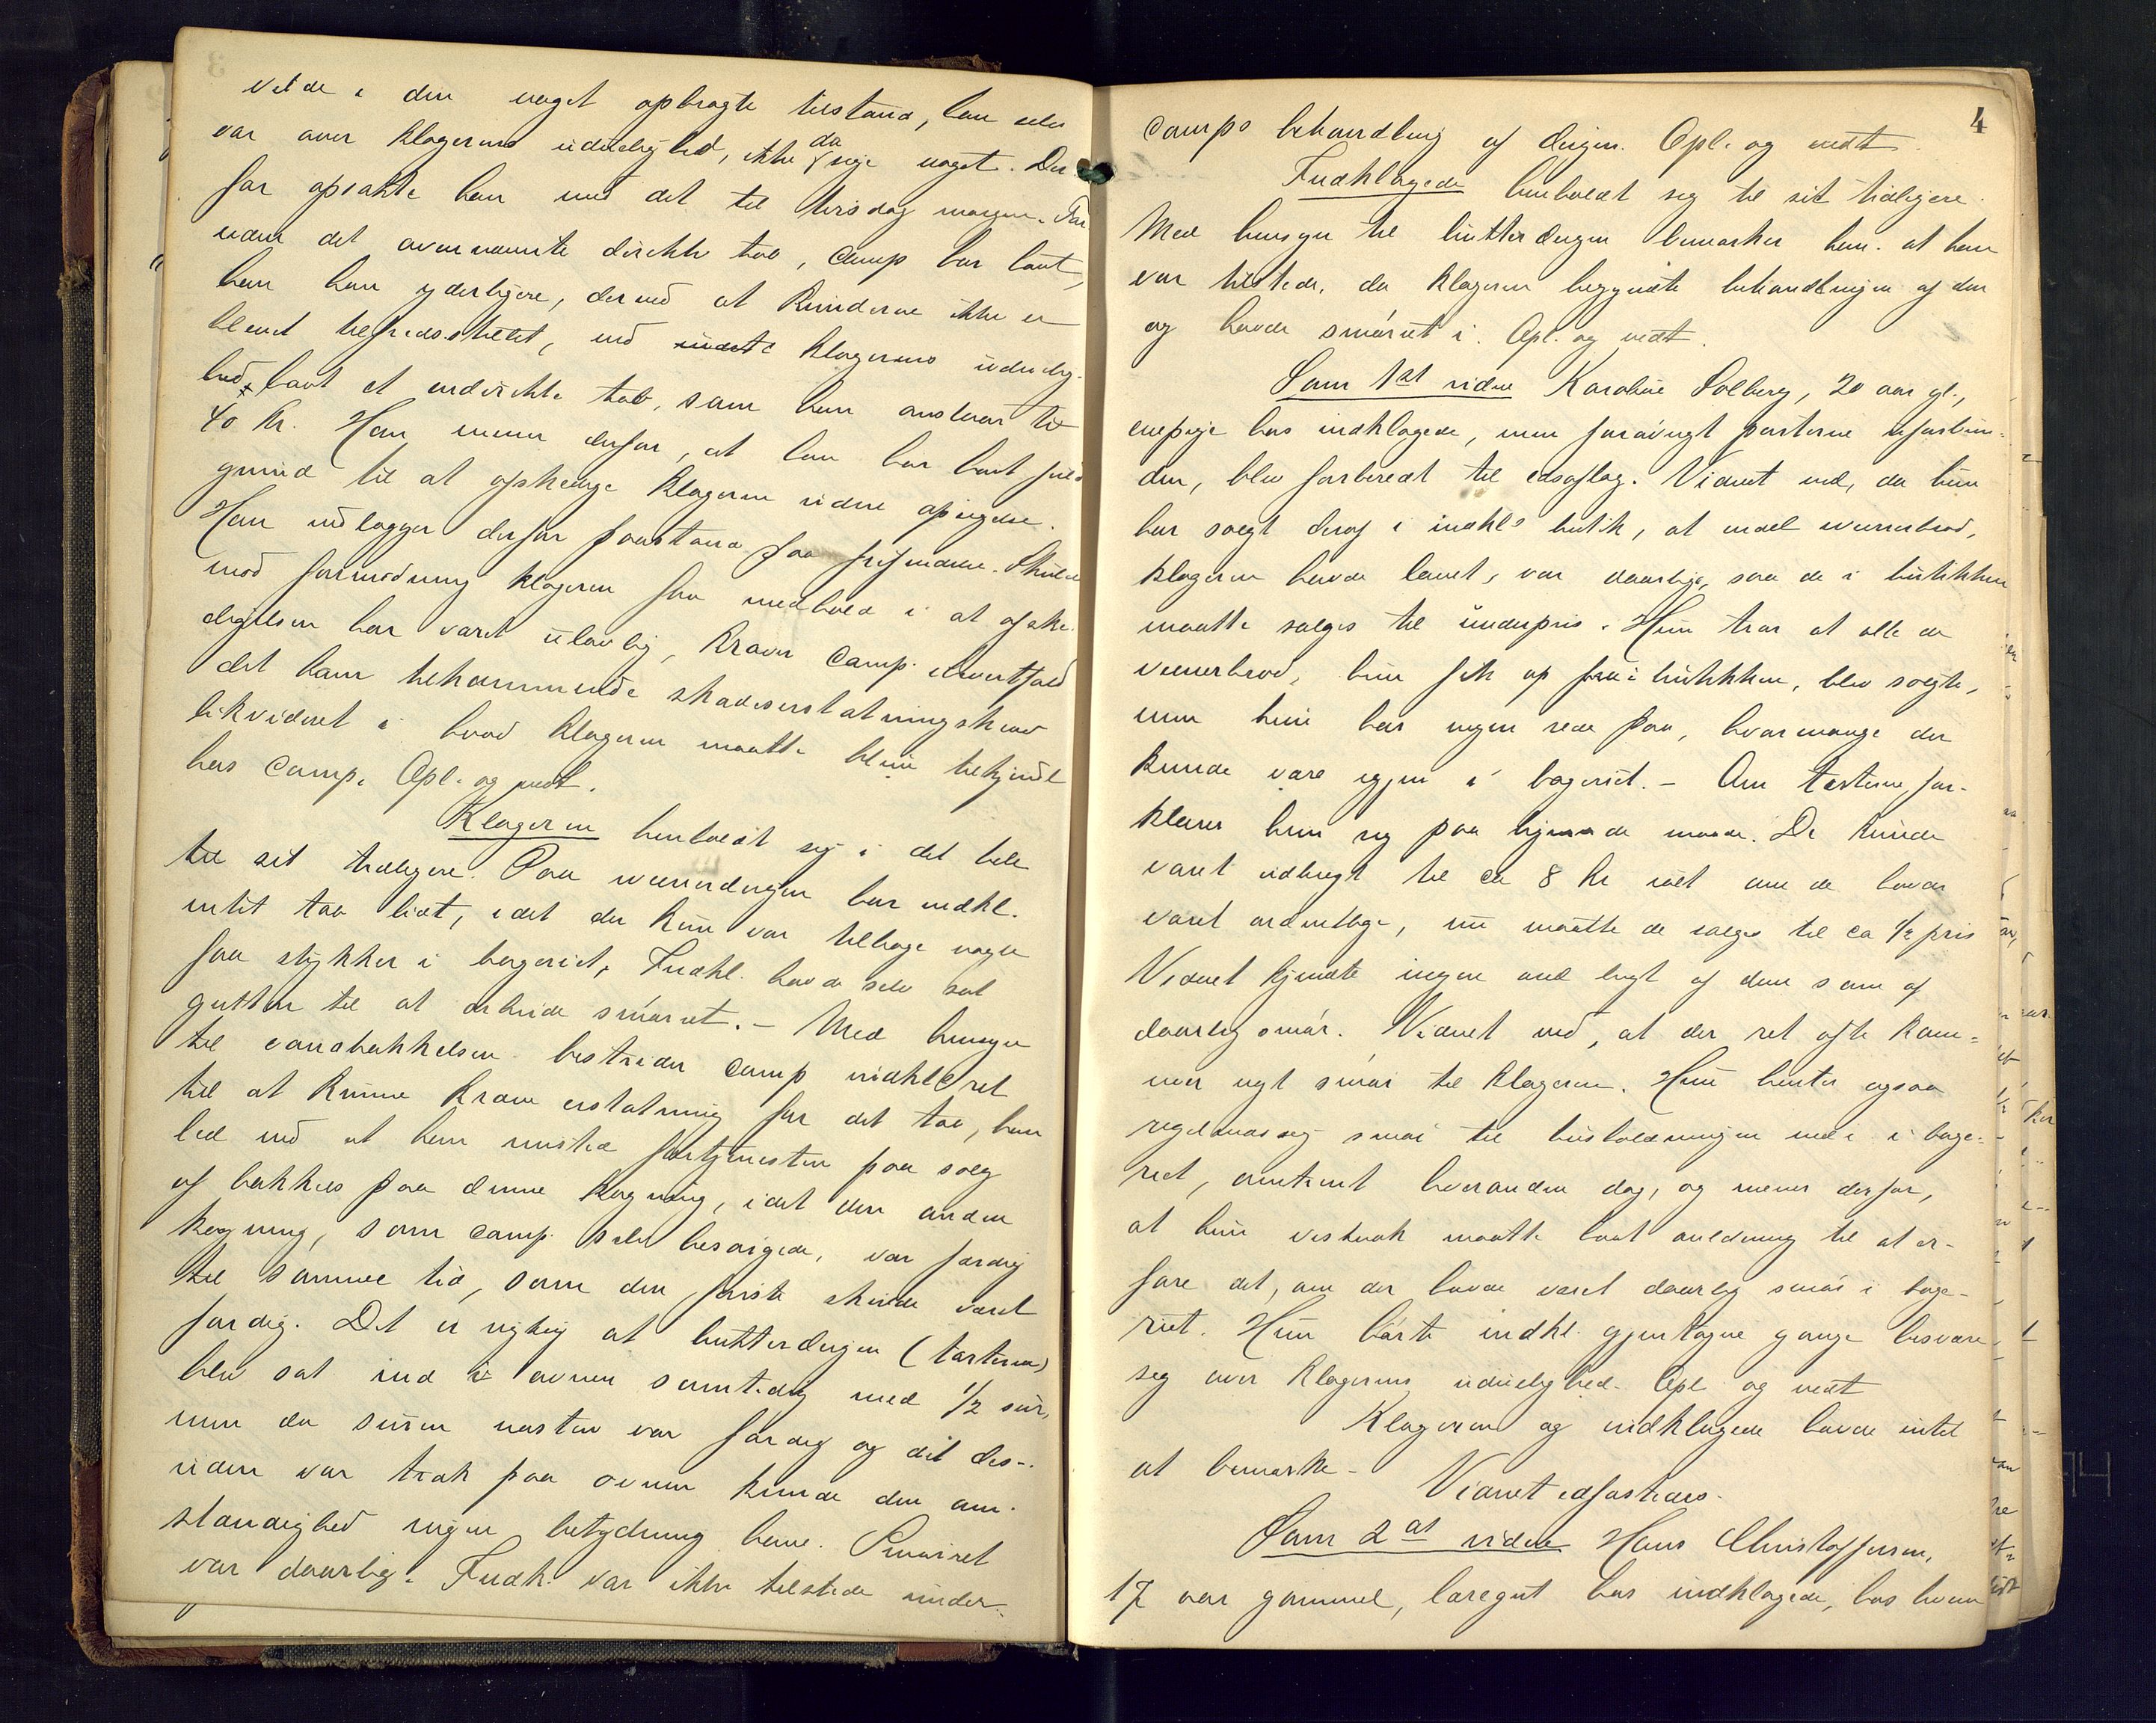 vilde i den noget opbragte tilstand, han selv
var over klagerens uduelighed, ikke da sige noget. Der-
for opsatte han med det til tirsdag morgen. For-
uden det ovennævnte direkte tab, Camp har havt,
har han yderligere, derved at kunderne ikke er
blevet tilfredsstillet, ved klagerens uduelig-
hed, havt et indirekte tab, som han anslaar til
40 kr. Han mener derfor, at han har havt fuld
grund til at afskedige klageren uden opsigelse.
Han nedlægger derfor paastand paa frifindelse. Skulde
mod formodning klageren faa medhold i at afske-
digelsen har været ulovlig, kræver Camp ialfald
det ham tilkommende skadeserstatningskrav
likvideret i hvad klageren maatte blive tilkjendt
hos Camp. Opl. og vedt.
Klageren henholdt sig i det hele
til sit tidligere. Paa wienerdeigen har indkl.
intet tab lidt, idet der kun var tilbage nogle
faa stykker i bageriet. Indkl. havde selv sat
gutten til at arbeide smørret. – Med hensyn
til vandbakkelsen bestrider Camp indkl. ret
til at kunne kræve erstatning for det tab, han
led ved at han mistede fortjenesten paa salg
af bakkels paa denne kogning, idet den anden
kogning, som Camp selv besørgede, var færdig
til samme tid, som den første skulde været
færdig. Det er rigtig at butterdeigen (tærterne)
blev sat ind i ovnen samtidig med 1/2 sur,
men da suren næsten var færdig og det des-
uden var træk paa ovnen kunde den om-
stændighed ingen betydning have. Smørret
var daarlig. Indk. var ikke tilstede under
4
Camps behandling af deigen. Opl. og vedt.
Indklagede henholdt sig til sit tidligere.
Med hensyn til butterdeigen bemærker han at han
var tilstede, da klageren begyndte behandlingen af den
og havde smørret i. Opl. og vedt.
Som 1st vidne Karoline Solberg, 20 aar gl.,
enepige hos indklagede, men forøvrigt parterne uforbun-
den, blev forberedt til edsaflæg. Vidnet ved, da hun
har solgt deraf i indkl's butik, at endel wienerbrød,
klageren havde lavet, var daarlige, saa de i butikken
maatte sælges til underpris. Hun tror at alle de
wienerbrød, hun fik op i butikken, blev solgte,
men hun har ingen rede paa, hvormange der
kunde være igjen i bageriet. – Om tærterne for-
klarer hun sig paa lignende maade. De kunde
været udbragt til ca 8 kr ialt om de havde
været ordentlige, nu maatte de sælges til ca 1/2 pris
Vidnet kjendte ingen ond lugt af dem som af
daarlig smør. Vidnet ved, at der ret ofte kom-
mer nyt smør til klageren. Hun henter ogsaa
regelmæssig smør til husholdningen nede i bage-
riet, omtrent hverandre dag, og mener derfor,
at hun vistnok maatte havt anledning til at er-
fare det, om der havde været daarlig smør i bage-
riet. Hun hørte indkl. gjentagne gange besvære
sig over klagerens udueligbed. Opl. og vedt
Klageren og indklagede havde intet
at bemærke – Vidnet edfæstedes.
Som 2det vidne Hans Christoffersen,
17 aar gammel, læregut hos indklagede, hos hvem